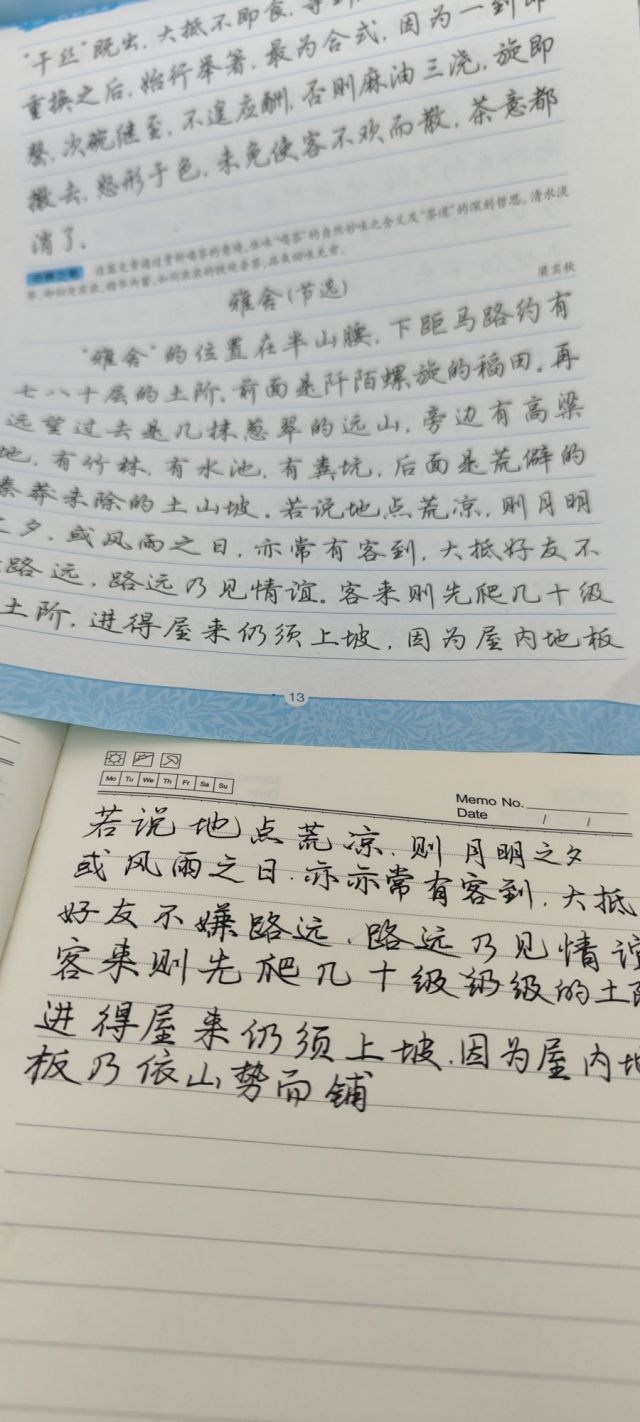 "干丝"既出，大抵不即食，等到
重换之后，始行举箸，最为合式，因为一到即
罄，次碗继至，不遑应酬，否则麻油三浇，旋即
撤去，怒形于色，未免使客不欢而散，茶意都
消了。
雅舍(节选)
梁实秋
"雅舍"的位置在半山腰，下距马路约有
七八十层的土阶。前面是阡陌螺旋的稻田。再
远望过去是几抹葱翠的远山，旁边有高粱
地，有竹林，有水池，有粪坑，后面是荒僻的
榛莽未除的土山坡。若说地点荒凉，则月明
之夕，或风雨之日，亦常有客到，大抵好友不
路远，路远乃见情谊。客来则先爬几十级
土阶，进得屋来仍须上坡，因为屋内地板
13
Mo Tu We Th Fr Sa Su
Memo No.
Date / /
若说地点荒凉，则月明之夕
或风雨之日.亦亦常有客到，大抵
好友不嫌路远，路远乃见情谊
客来则先爬几十级级的土阶
进得屋来仍须上坡.因为屋内地
板乃依山势而铺